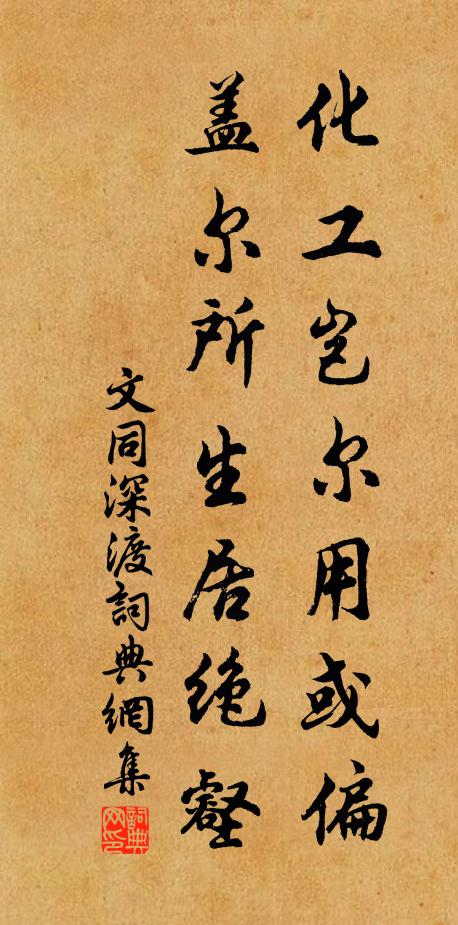 化工岂尔用或偏
盖尔所生居绝壑
文同深渡詞典網集
詞典网印